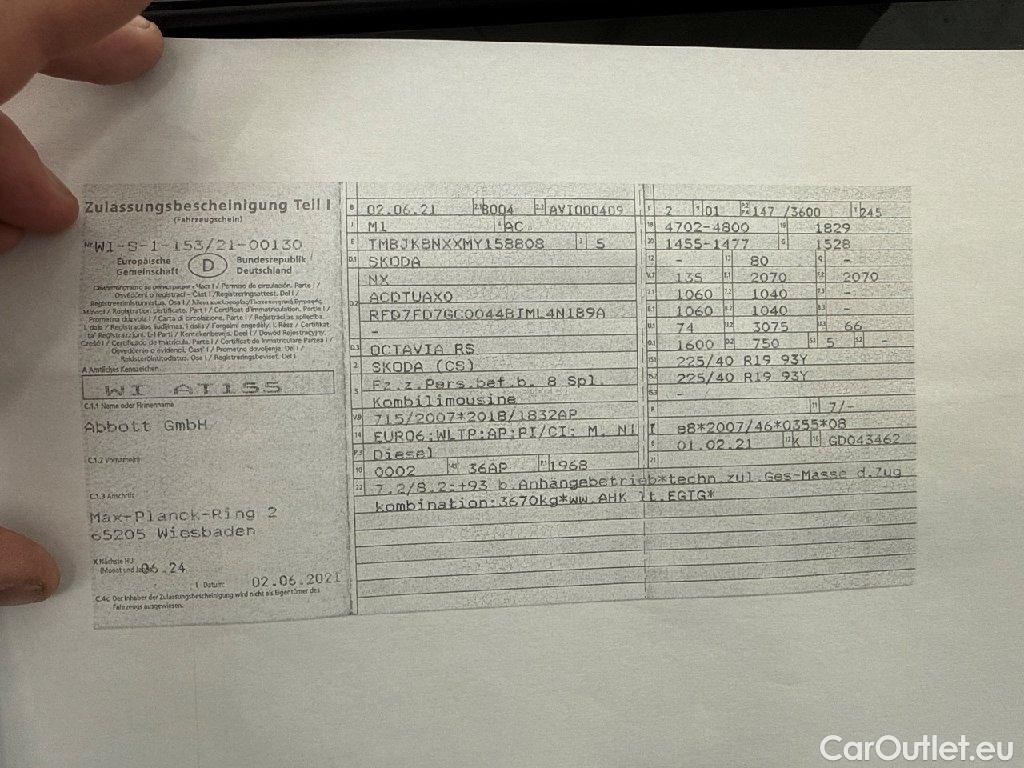 Zulassungsbescheinigung Teil I
(Fahrzeugschein)
Nr. WI-S-1-153/21-00130
Europäische
Gemeinschaft
D
Bundesrepublik
Deutschland
A Amtliches Kennzeichen
WI AT155
C.1.1 Name oder Firmenname
Abbott GmbH
C.1.2 Vorname(n)
C.1.3 Anschrift
Max-Planck-Ring 2
65205 Wiesbaden
06.24
I Datum: 02.06.2021
C.4c Der Inhaber der Zulassungsbescheinigung wird nicht als Eigentümer des
Fahrzeugs ausgewiesen.
B 02.06.21 8004 AVI000409
J M1 4 AC
E TMBJKBNXXMY158808 3 5
D.1 SKODA
NX
D.2 ACDTUAX0
RFD7FD7GC0044BIML4N189A
-
D.3 OCTAVIA RS
2 SKODA (CS)
5 Fz.z.Pers.bef.b. 8 Spl.
Kombilimousine
V.9 715/2007*2018/1832AP
14 EURO6;WLTP;AP;PI/CI; M, N1
P.3 Diesel
10 0002 14.1 36AP P.1 1968
22 7.2/8.2:+93 b.Anhängebetrieb*techn.zul.Ges-Masse d.Zug
kombination:3670kg*ww.AHK lt.EGTG*
2 01 147 /3600 T 245
18 4702-4800 19 1829
20 1455-1477 G 1528
12 - 13 80 Q -
V.7 135 F.1 2070 F.2 2070
7.1 1060 7.2 1040 7.3 -
8.1 1060 8.2 1040 8.3 -
U.1 74 U.2 3075 U.3 66
O.1 1600 O.2 750 S.1 5 S.2 -
15.1 225/40 R19 93Y
15.2 225/40 R19 93Y
15.3 -
R 11 7/-
K e8*2007/46*0355*08
6 01.02.21 17 K 16 GD043462
21
CarOutlet.eu